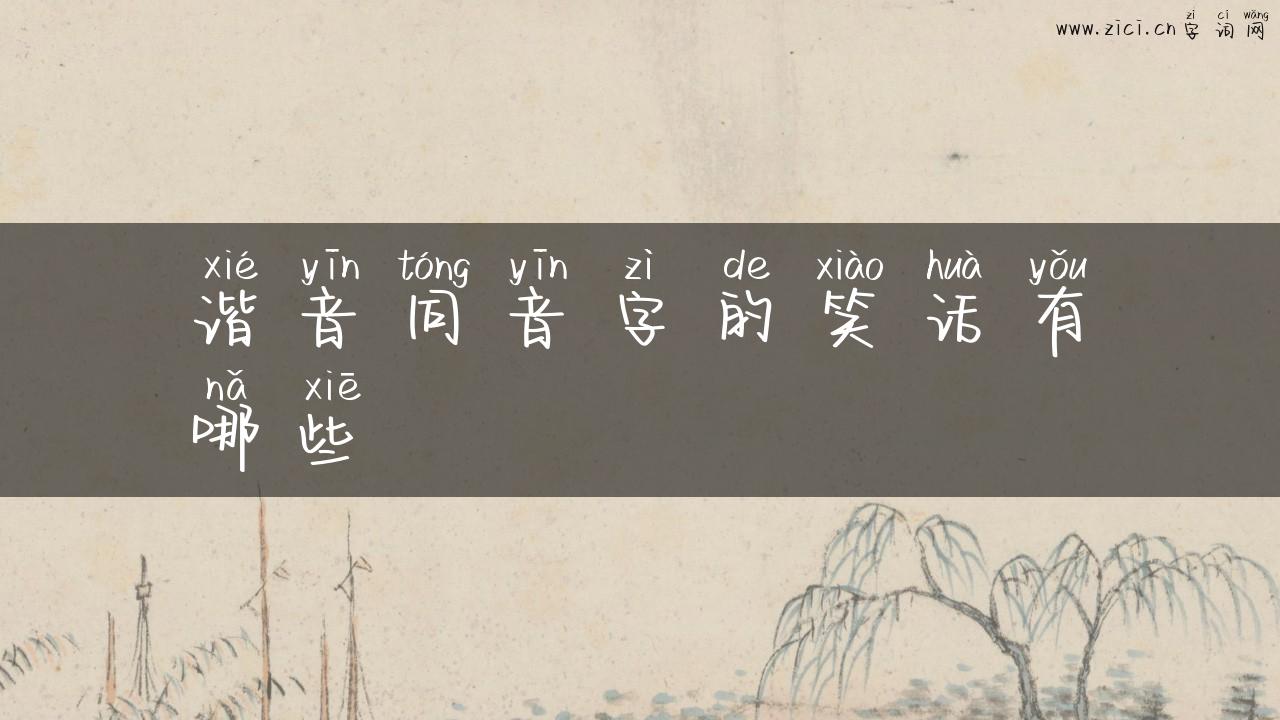 zì cí wǎng
www.zici.cn 字词网
xié yīn tóng yīn zì de xiào huà yǒu
谐音同音字的笑话有
nǎ xiē
哪些